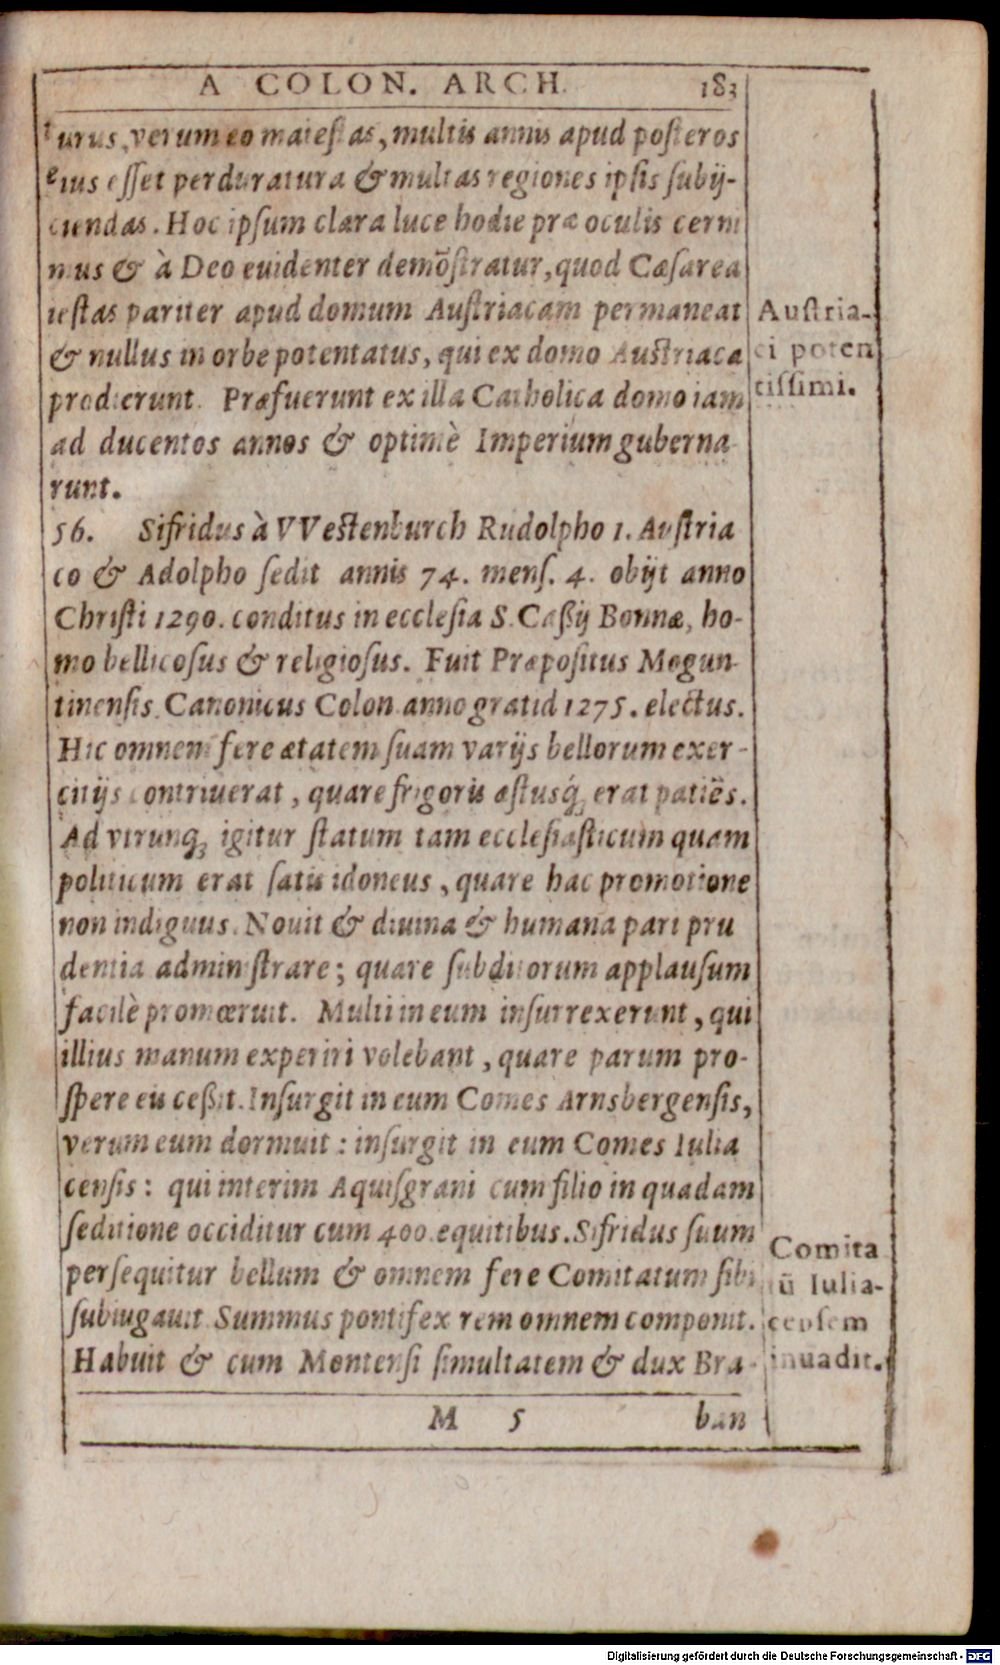 A COLON. ARCH. 183
turus, verum eo maiestas, multis annis apud posteros
eius esset perduratura & multas regiones ipsis subij-
ciendas. Hoc ipsum clara luce hodie præ oculis cerni
mus & à Deo euidenter demōstratur, quod Cæsarea
iestas pariter apud domum Austriacam permaneat
& nullus in orbe potentatus, qui ex domo Austriaca
prodierunt. Præfuerunt ex illa Catholica domo iam
ad ducentos annos & optimè Imperium guberna
runt.
Austria-
ci poten
tissimi.
56. Sifridus à VVestenburch Rudolpho 1. Austria
co & Adolpho sedit annis 74. mens. 4. obijt anno
Christi 1290. conditus in ecclesia S. Caßij Bonnæ, ho-
mo bellicosus & religiosus. Fuit Præpositus Mogun-
tinensis. Canonicus Colon. anno gratiæ 1275. electus.
Hic omnem fere ætatem suam varijs bellorum exer-
citijs contriuerat, quare frigoris æstusq́; erat patiēs.
Ad vtrunq; igitur statum tam ecclesiasticum quam
politicum erat satis idoneus, quare hac promotione
non indignus. Nouit & diuina & humana pari pru
dentia administrare; quare subditorum applausum
facilè promœruit. Multi in eum insurrexerunt, qui
illius manum experiri volebant, quare parum pro-
spere eis ceßit. Insurgit in eum Comes Arnsbergensis,
verum eum dormuit: insurgit in eum Comes Iulia
censis: qui interim Aquisgrani cum filio in quadam
seditione occiditur cum 400. equitibus. Sifridus suum
persequitur bellum & omnem fere Comitatum sibi
subiugauit. Summus pontifex rem omnem componit.
Habuit & cum Montensi simultatem & dux Bra-
Comita
tū Iulia-
censem
inuadit.
M 5 ban
Digitalisierung gefördert durch die Deutsche Forschungsgemeinschaft - DFG